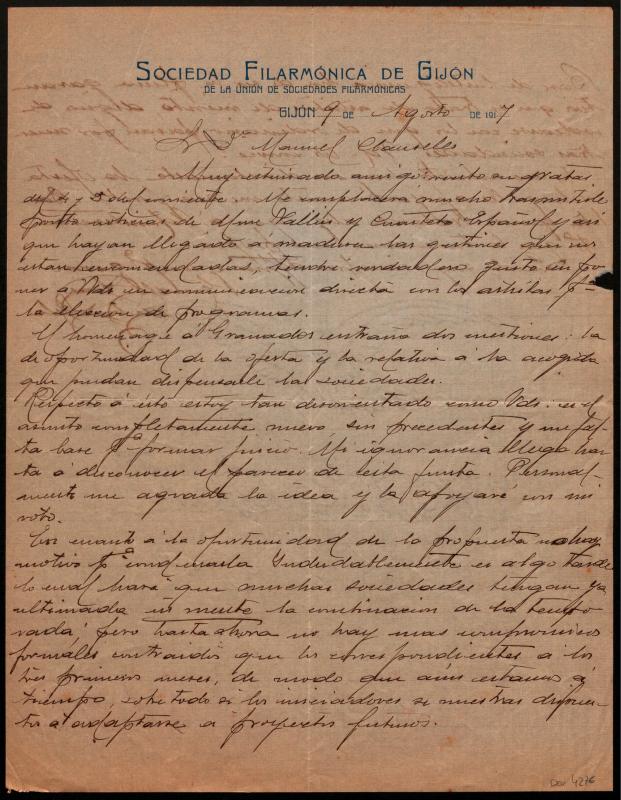 SOCIEDAD FILARMÓNICA DE GIJÓN
DE LA UNIÓN DE SOCIEDADES FILARMÓNICAS
GIJÓN 9 DE Agosto DE 1917
Sr Dn Manuel Clausells
Muy estimado amigo: recibo sus gratas
del 4 y 5 del corriente. Me complacerá mucho trasmitirle
pronto noticias de Mme Vallin y Cuarteto Español y así
que hayan llegado a madurez las gestiones que nos
estan encomendadas, tendré verdadero gusto en po
ner a Vds en comunicacion directa con los artistas pa
la eleccion de programas.
El homenage á Granados entraña dos cuestiones: la
de oportunidad de la oferta y la relativa a la acogida
que puedan dispensarle las sociedades.
Respecto á esto estoy tan desorientado como Vds: es el
asunto completamente nuevo, sin precedentes y me fal
ta base pa formar juicio. Mi ignorancia llega has
ta a desconocer el parecer de esta Junta. Personal-
mente me agrada la idea y la apoyaré con mi
voto.
En cuanto á la oportunidad de la propuesta no hay
motivo pa condenarla. Indudablemente es algo tarde
lo cual hará que muchas sociedades tengan ya
ultimada in mente la continuacion de la tempo
rada; pero hasta ahora no hay mas compromisos
formales contraidos que los correspondientes a los
tres primeros meses, de modo que aún estamos á
tiempo, sobre todo si los iniciadores se muestran dispues
tos a adaptarse a proyectos futuros.
Doc 4276